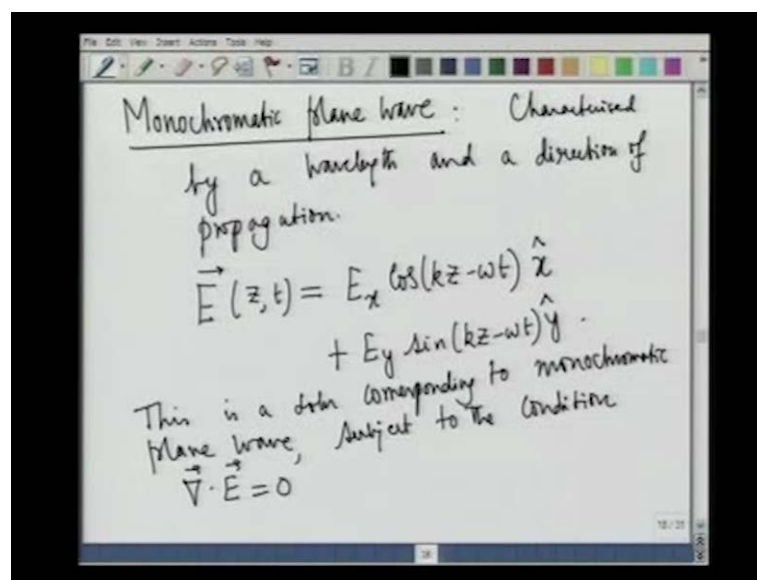 File Edit View Insert Actions Tools Help
Monochromatic plane wave : Characterised
by a wavelength and a direction of
propagation.
E⃗ (z,t) = Eₓ cos(kz-ωt) x̂
+ Ey sin(kz-ωt) ŷ .
This is a soln corresponding to monochromatic
plane wave, subject to the condition
∇⃗ · E⃗ = 0